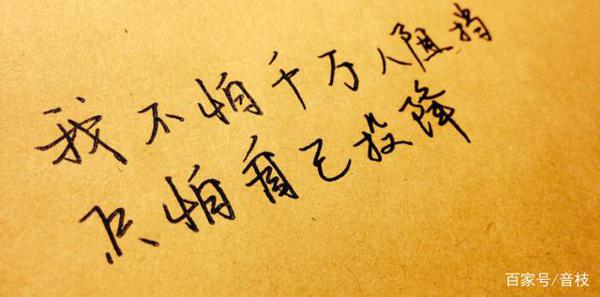 我不怕千万人阻挡
只怕自己投降
百家号/音枝